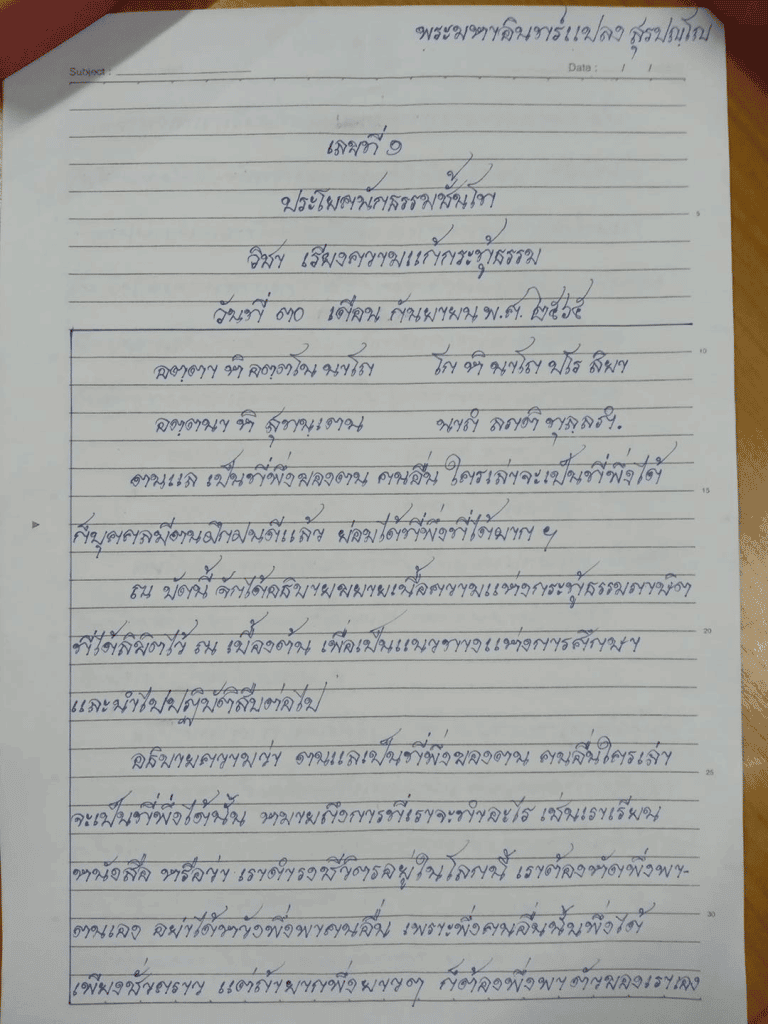 พระมหาอินทร์แปลง สุรปญฺโญ
Subject :
Date : / /
เลขที่ ๑
ประโยคนักธรรมชั้นโท
วิชา เรียงความแก้กระทู้ธรรม
วันที่ ๓๐ เดือน กันยายน พ.ศ. ๒๕๖๕
อตฺตา หิ อตฺตโน นาโถ โก หิ นาโถ ปโร สิยา
อตฺตนา หิ สุทนฺเตน นาถํ ลภติ ทุลฺลภํ.
ตนแล เป็นที่พึ่งของตน คนอื่น ใครเล่าจะเป็นที่พึ่งได้
ก็บุคคลมีตนฝึกฝนดีแล้ว ย่อมได้ที่พึ่งที่ได้ยาก ฯ
ณ บัดนี้ จักได้อธิบายขยายเนื้อความแห่งกระทู้ธรรมภาษิต
ที่ได้ลิขิตไว้ ณ เบื้องต้น เพื่อเป็นแนวทางแห่งการศึกษา
และนำไปปฏิบัติสืบต่อไป
อธิบายความว่า ตนแลเป็นที่พึ่งของตน คนอื่นใครเล่า
จะเป็นที่พึ่งได้นั้น หมายถึงการที่เราจะทำอะไร เช่นเราเรียน
หนังสือ หรือว่า เราดำรงชีวิตรอยู่ในโลกนี้ เราต้องหัดพึ่งพา-
ตนเอง อย่าได้หวังพึ่งพาคนอื่น เพราะพึ่งคนอื่นนั้นพึ่งได้
เพียงชั่วคราว แต่ถ้าอยากพึ่งยาวๆ ก็ต้องพึ่งพาตัวของเราเอง
5
10
15
20
25
30